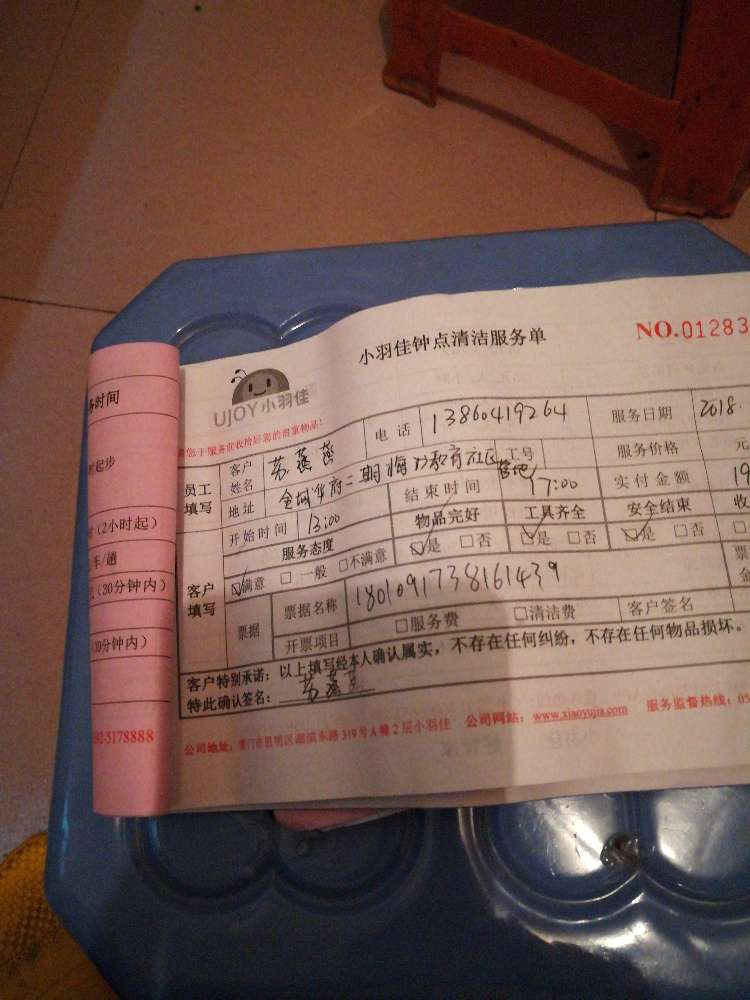 小羽佳钟点清洁服务单
NO.01283
UJOY小羽佳
务时间
时起步
(2小时起)
车/趟
(30分钟内)
30分钟内)
92-5178888
员工填写
客户姓名 苏燕燕 电话 13860419264 服务日期 2018.
地址 金域华府二期 工号 服务价格 元
开始时间 13:00 结束时间 17:00 实付金额 19
客户填写
服务态度 物品完好 工具齐全 安全结束 收
☑满意 □一般 □不满意 ☑是 □否 ☑是 □否 ☑是 □否
票据 票据名称 1801091738161439 票
开票项目 □服务费 □清洁费 客户签名 金
客户特别承诺:以上填写经本人确认属实,不存在任何纠纷,不存在任何物品损坏。
特此确认签名: 苏燕燕
公司地址:厦门市思明区湖滨东路319号A幢2层小羽佳 公司网站:www.xiaoyujia.com 服务监督热线:05